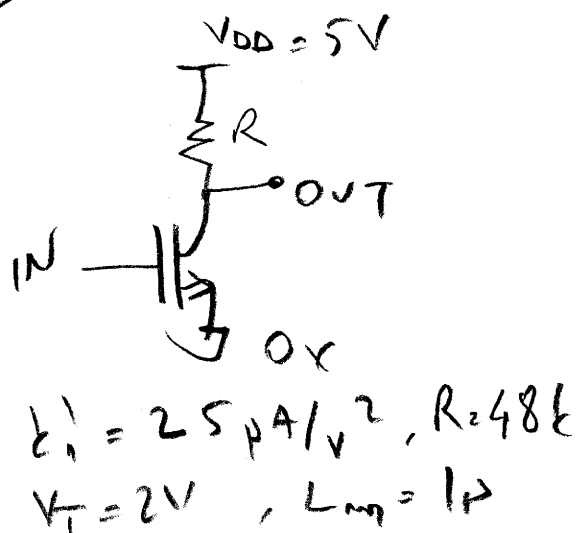 VDD = 5V
R
OUT
IN
0V
k'n = 25 μA/V², R = 48k
VT = 2V , Lmin = 1μ